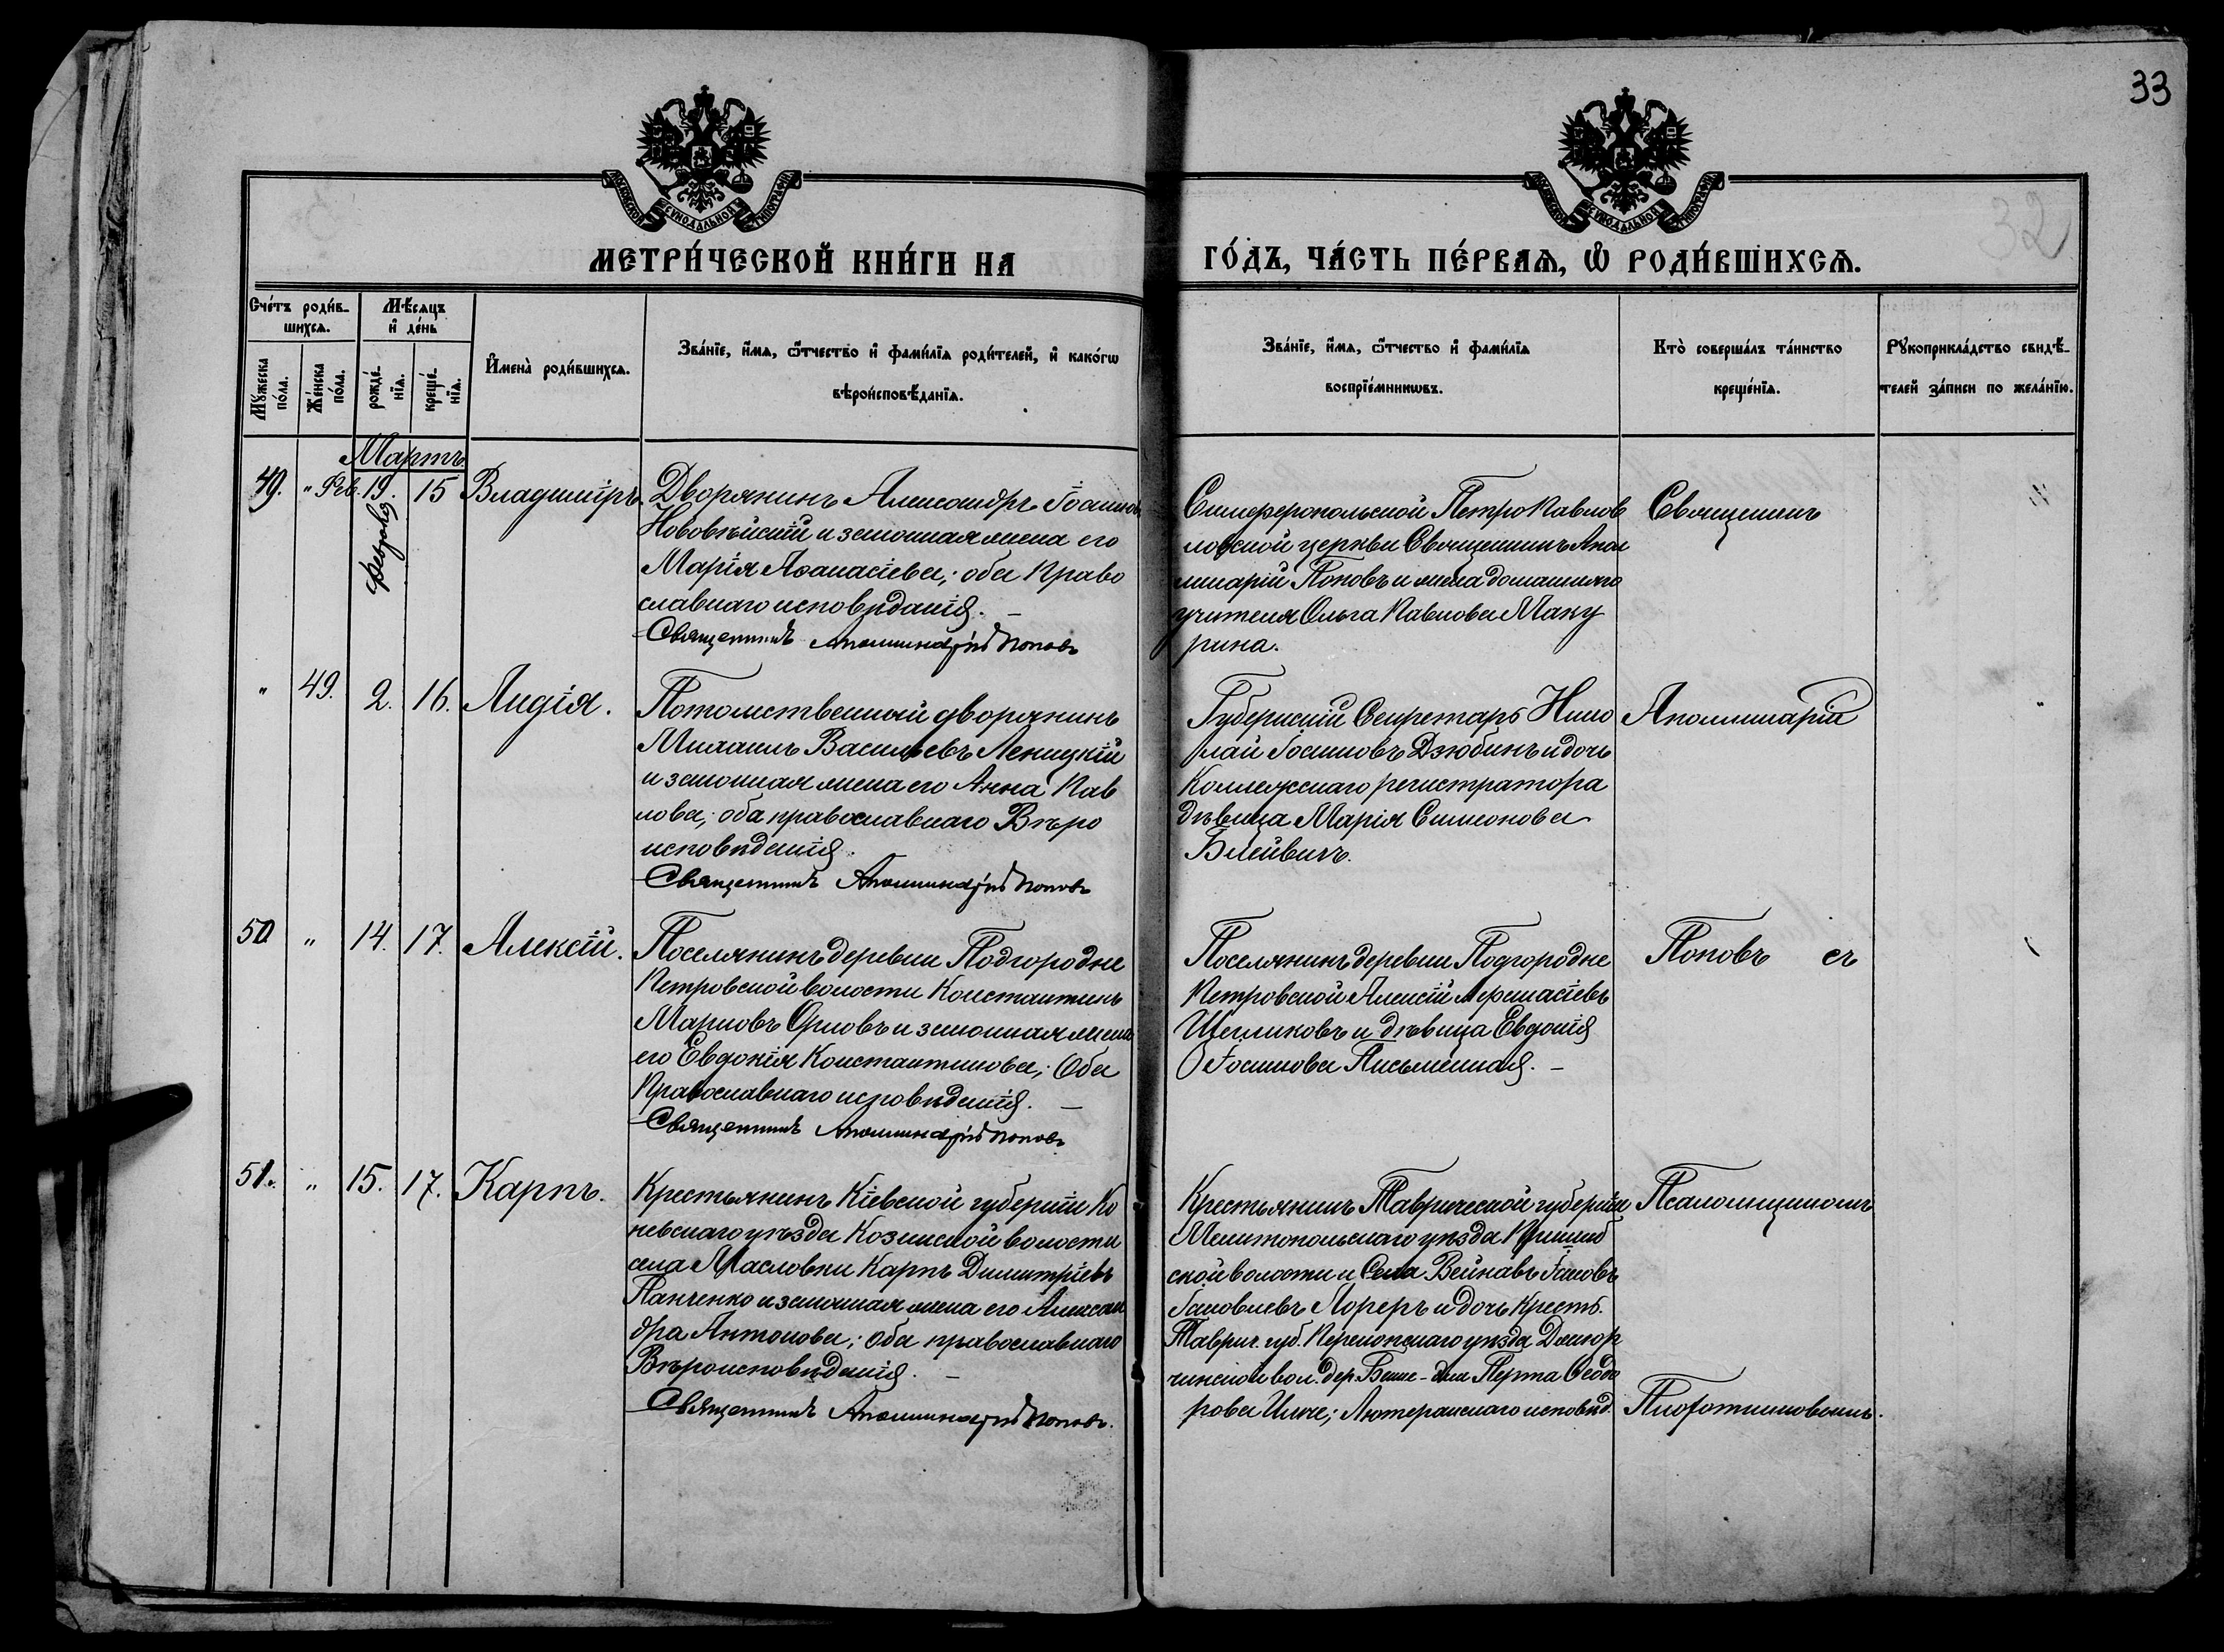 33
32
МОСКОВСКОЙ СѴНОДАЛЬНОЙ ТИПОГРАФІИ
МОСКОВСКОЙ СѴНОДАЛЬНОЙ ТИПОГРАФІИ
МЕТРИ́ЧЕСКОЙ КНИ́ГИ НА
ГО́ДЪ, ЧА́СТЬ ПЕ́РВАѦ, Ѡ҆ РОДИ́ВШИХСѦ.
Сче́тъ роди́в-
шихсѧ.
Мꙋ́жеска
по́ла.
Же́нска
по́ла.
Мѣ́сѧцъ
и҆ де́нь
рожде́-
нїѧ.
креще́-
нїѧ.
И҆мена̀ роди́вшихсѧ.
Зва́нїе, и҆́мѧ, ѻ҆́тчество и҆ фамі́лїѧ роди́телей, и҆ како́гѡ
вѣроисповѣ́данїѧ.
Зва́нїе, и҆́мѧ, ѻ҆́тчество и҆ фамі́лїѧ
воспрїе́мникѡвъ.
Кто̀ соверша́лъ та́инство
креще́нїѧ.
Рꙋкоприкла́дство свидѣ́-
телей за́писи по жела́нїю.
Мартъ
49. " Фев. 19. 15 Владиміръ.
февраля
Дворянинъ Александръ Іоаннов
Нововѣйскій и законная жена его
Марія Аѳанасіева; оба Право
славнаго исповѣданія. —
Священникъ Аполлинарій Попов
Симферопольской Петропавлов
ловской церкви Священникъ Апол
линарій Поповъ и жена домашняго
учителя Ольга Павлова Маку
рина.
Священникъ
" 49. 2. 16. Лидія.
Потомственный дворянинъ
Михаилъ Васильевъ Леницкій
и законная жена его Анна Пав
лова; оба православнаго Вѣро
исповѣданія.
Священникъ Аполлинарій Попов
Губернскій Секретарь Нико
лай Іоанновъ Дзюбинъ и дочь
Коллежскаго регистратора
дѣвица Марія Симеонова
Блейвичъ.
Аполлинарій
50 " 14. 17. Алексій.
Поселянинъ деревни Подгородне
Петровской волости Константинъ
Марковъ Орловъ и законная жена
его Евдокія Константинова; Оба
Православнаго исповѣданія. —
Священникъ Аполлинарій Попов
Поселянинъ деревни Подгородне
Петровской Алексій
Щегликовъ и дѣвица Евдокія
Іоаннова Письменная. —
Поповъ съ
51. " 15. 17. Карпъ.
Крестьянинъ Кіевской губерніи Ка
невскаго уѣзда Козинской волости
села Масловки Карпъ Димитріевъ
Панченко и законная жена его Алексан
дра Антонова; Оба православнаго
Вѣроисповѣданія. —
Священникъ Аполлинарій Поповъ.
Крестьянинъ Таврической губерніи
Мелитопольскаго уѣзда Пришиб
ской волости и Села Вейнавъ Іаковъ
Іаковлевъ Лореръ и дочь Крестъ.
Таврич. губ. Перекопскаго уѣзда Джюр
чинской вол. дер. Берта Ѳеодо
рова Лютеранскаго исповѣд.
Псаломщикомъ